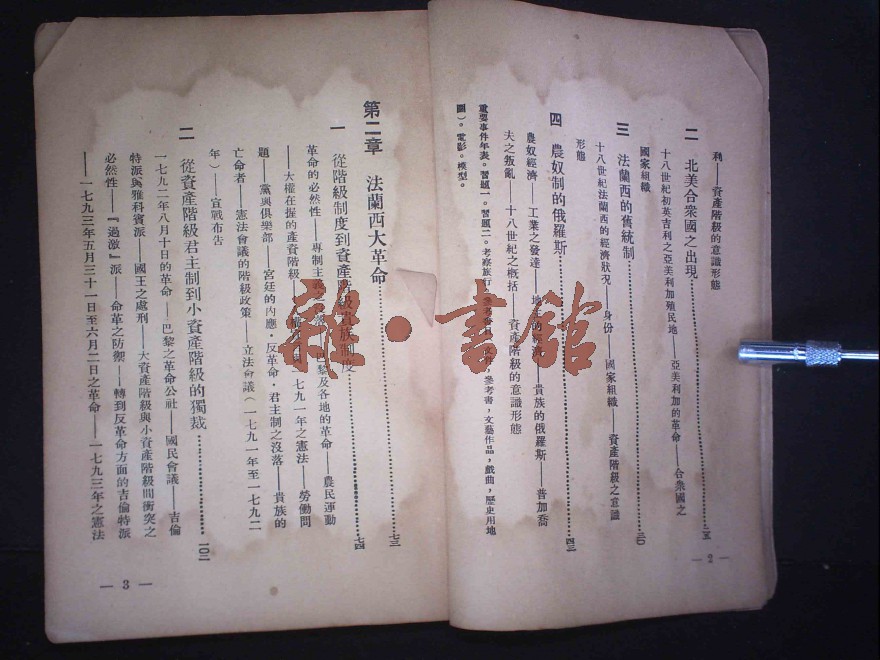 利——資產階級的意識形態
二 北美合衆國之出現……二五
十八世紀初英吉利之亞美利加殖民地——亞美利加的革命——合衆國之
國家組織
三 法蘭西的舊統制……三〇
十八世紀法蘭西的經濟狀况——身份——國家組織——資產階級之意識
形態
四 農奴制的俄羅斯……四三
農奴經濟——工業之發達——地主的經濟——貴族的俄羅斯——普加喬
夫之叛亂——十八世紀之概括——資產階級的意識形態
重要事件年表。習題一。習題二。考察旅行。參考書,文藝作品,戲曲,歷史用地
圖)。電影。模型。
— 2 —
第二章 法蘭西大革命……七三
一 從階級制度到資產階級貴族制度……七四
革命的必然性——專制主義之沒落——巴黎及各地的革命——農民運動
——大權在握的產資階級——七九一年之憲法——勞働問
題——黨與俱樂部——宮廷的內應·反革命·君主制之沒落——貴族的
亡命者——憲法會議的階級政策——立法會議(一七九一年至一七九二
年)——宣戰布告
二 從資產階級君主制到小資產階級的獨裁……一〇二
一七九二年八月十日的革命——巴黎之革命公社——國民會議——吉倫
特派與雅科賓派——國王之處刑——大資產階級與小資產階級間衝突之
必然性——『過激』派——命革之防禦——轉到反革命方面的吉倫特派
——一七九三年五月三十一日至六月二日之革命——一七九三年之憲法
— 3 —
雜·書館